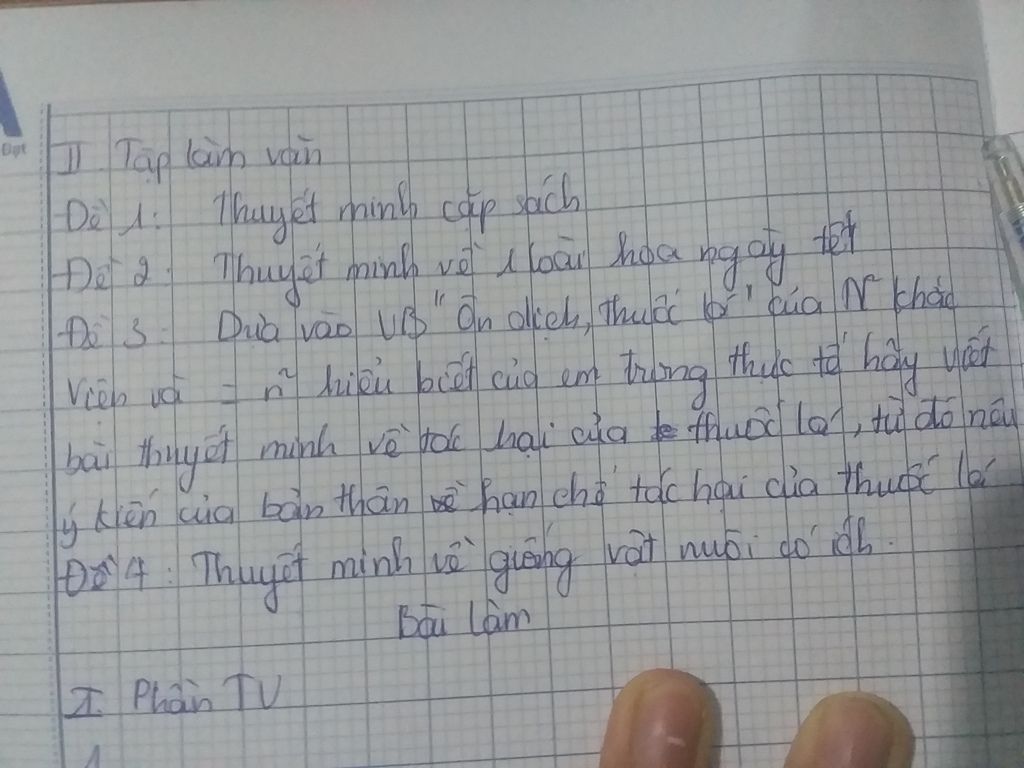 II. Tập làm văn
Đề 1: Thuyết minh cặp sách
Đề 2: Thuyết minh về 1 loài hoa ngày tết
Đề 3: Dựa vào VB "Ôn dịch, thuốc lá" của N khắc
Viện và = n² hiểu biết của em trong thực tế hãy viết
bài thuyết minh về tác hại của thuốc lá, từ đó nêu
ý kiến của bản thân về hạn chế tác hại của thuốc lá
Đề 4: Thuyết minh về giống vật nuôi có ích.
Bài làm
I. Phần TV
1